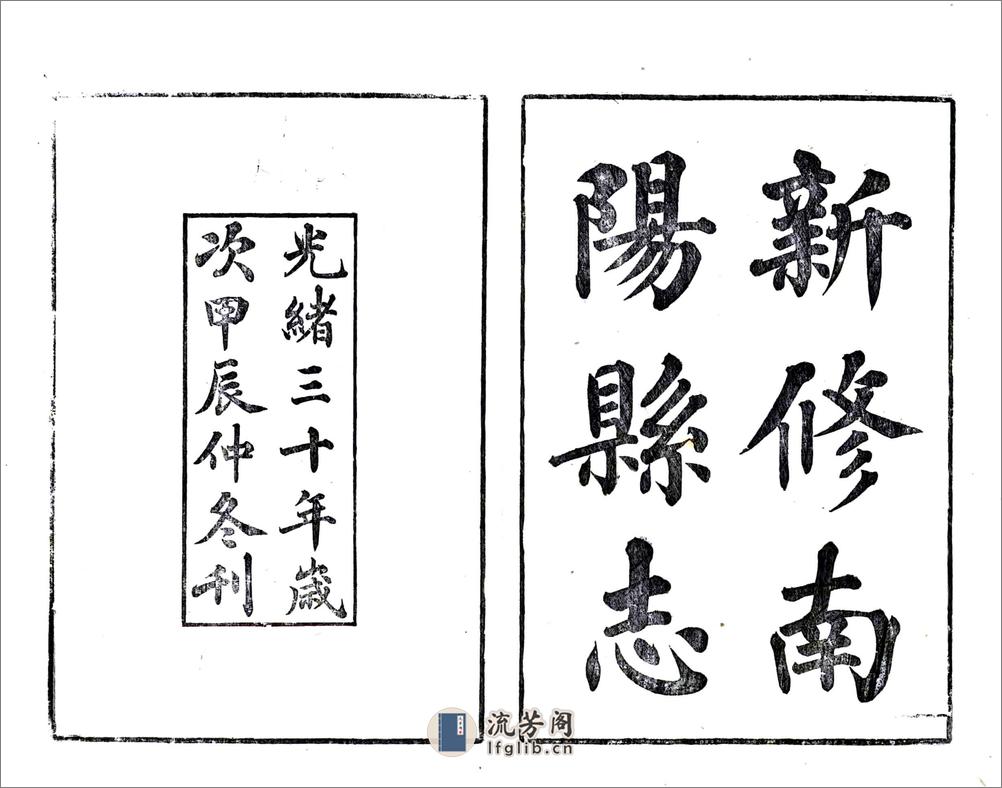 新修南
陽縣志
光緒三十年歲
次甲辰仲冬刊
流芳阁
lfglib.cn